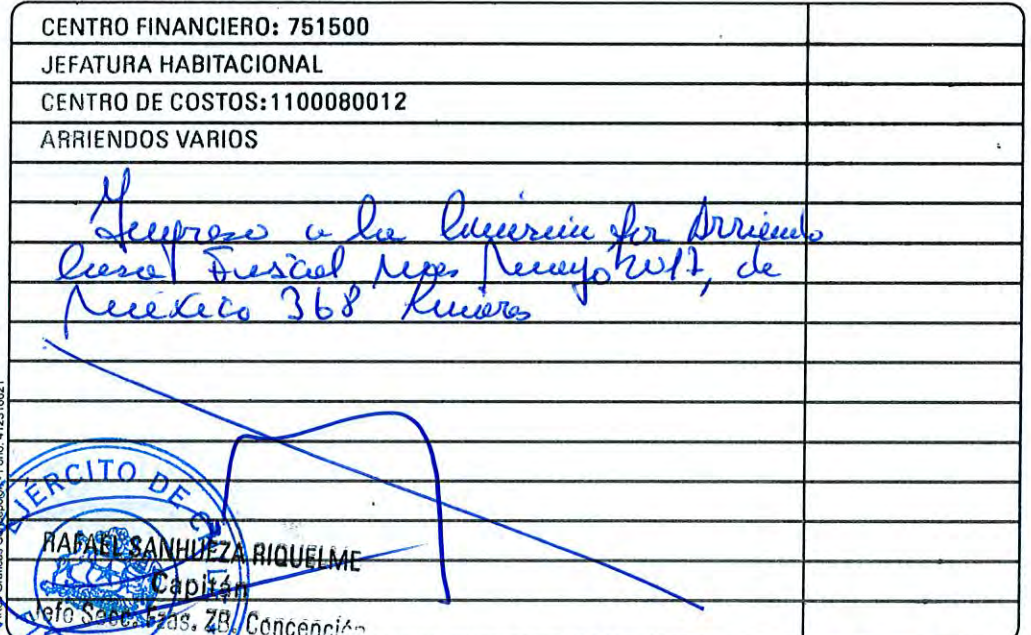 CENTRO FINANCIERO: 751500
JEFATURA HABITACIONAL
CENTRO DE COSTOS:1100080012
ARRIENDOS VARIOS
Ingreso a la por Arriendo
Casa Fiscal mes Mayo 2017, de
México 368
EJÉRCITO DE
RAFAEL SANHUEZA RIQUELME
Capitán
Jefe Secc. Fzas. ZB. Concepción